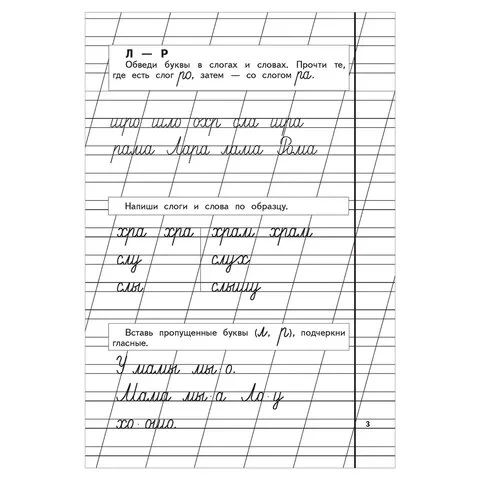 Л — Р
Обведи буквы в слогах и словах. Прочти те,
где есть слог ро, затем — со слогом ра.
шро шло охр сла шра
рама Лара лама Рома
Напиши слоги и слова по образцу.
хра хра храм храм
слу слух
слы слышу
Вставь пропущенные буквы (л, р), подчеркни
гласные.
У мамы мы·о.
Мама мы·а Ла·у
хо·ошо.
3